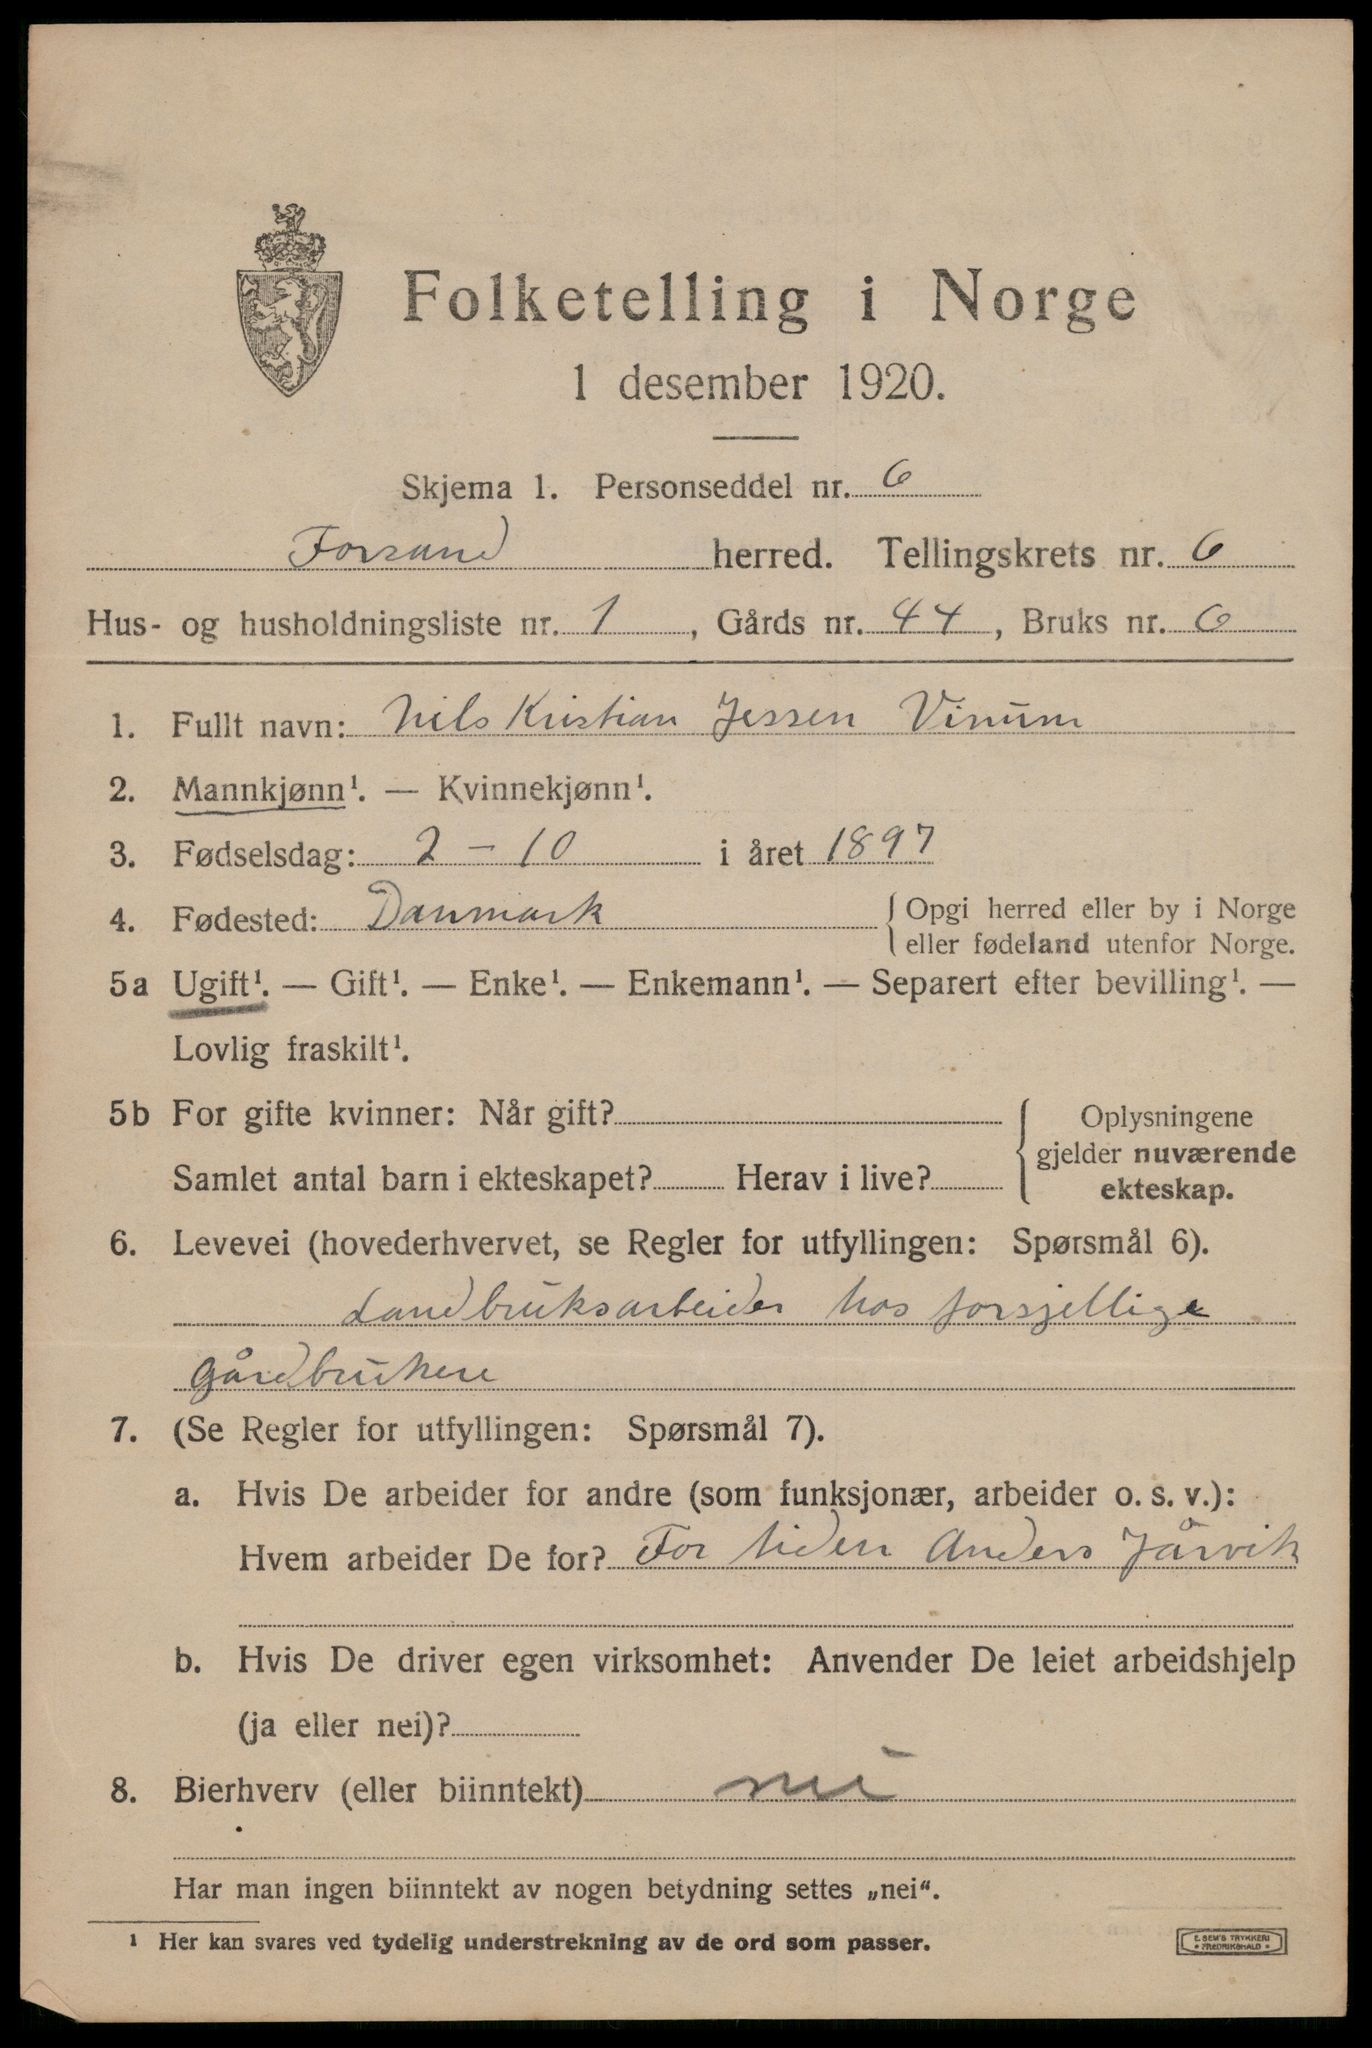 Folketelling i Norge
1 desember 1920.
Skjema 1. Personseddel nr. 6
Forsand herred. Tellingskrets nr. 6
Hus- og husholdningsliste nr. 1, Gårds nr. 44, Bruks nr. 6
1. Fullt navn: Nils Kristian Jessen Vinum
2. Mannkjønn¹. — Kvinnekjønn¹.
3. Fødselsdag: 2 – 10 i året 1897
4. Fødested: Danmark { Opgi herred eller by i Norge
eller fødeland utenfor Norge.
5a Ugift¹. — Gift¹. — Enke¹. — Enkemann¹. — Separert efter bevilling¹. —
Lovlig fraskilt¹.
5b For gifte kvinner: Når gift? { Oplysningene
gjelder nuværende
Samlet antal barn i ekteskapet? Herav i live? ekteskap.
6. Levevei (hovederhvervet, se Regler for utfyllingen: Spørsmål 6).
Landbruksarbeider hos forsjellige
gårdbrukere
7. (Se Regler for utfyllingen: Spørsmål 7).
a. Hvis De arbeider for andre (som funksjonær, arbeider o. s. v.):
Hvem arbeider De for? For tiden Anders Jårvik
b. Hvis De driver egen virksomhet: Anvender De leiet arbeidshjelp
(ja eller nei)?
8. Bierhverv (eller biinntekt) nei
Har man ingen biinntekt av nogen betydning settes „nei“.
¹ Her kan svares ved tydelig understrekning av de ord som passer.
E. SEM'S TRYKKERI
FREDRIKSHALD